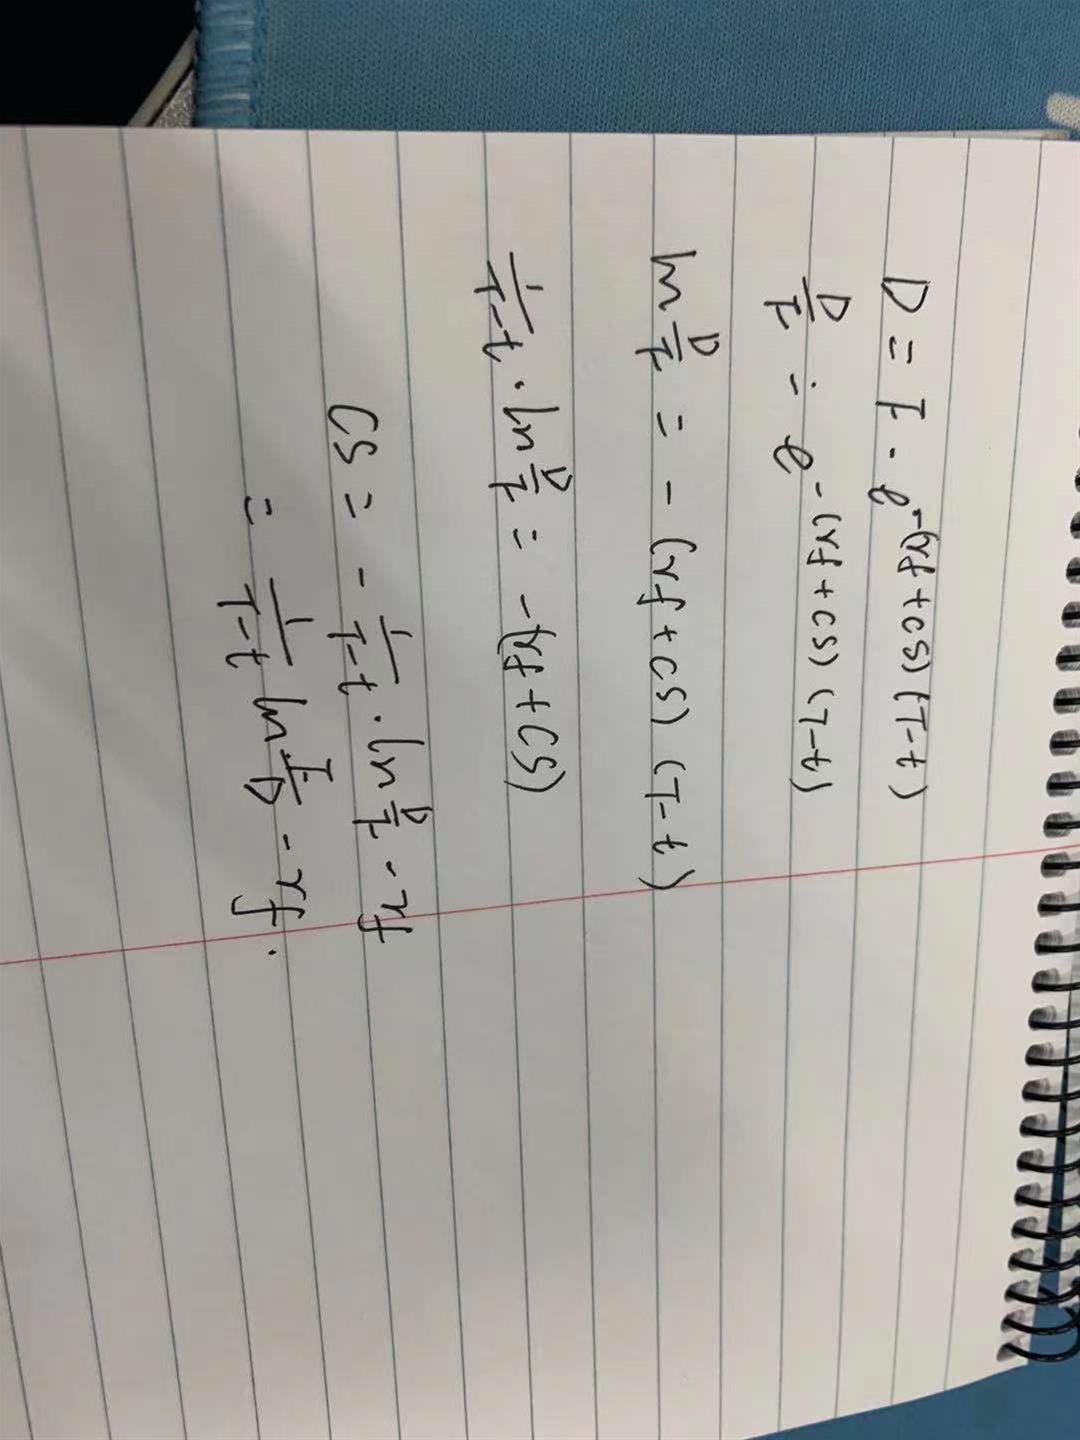 D = F · e^{-(rf+cs)(T-t)}
D/F = e^{-(rf+cs)(T-t)}
ln D/F = - (rf+cs)(T-t)
1/(T-t) · ln D/F = -(rf+cs)
CS = - 1/(T-t) · ln D/F - rf
= 1/(T-t) ln F/D - rf.